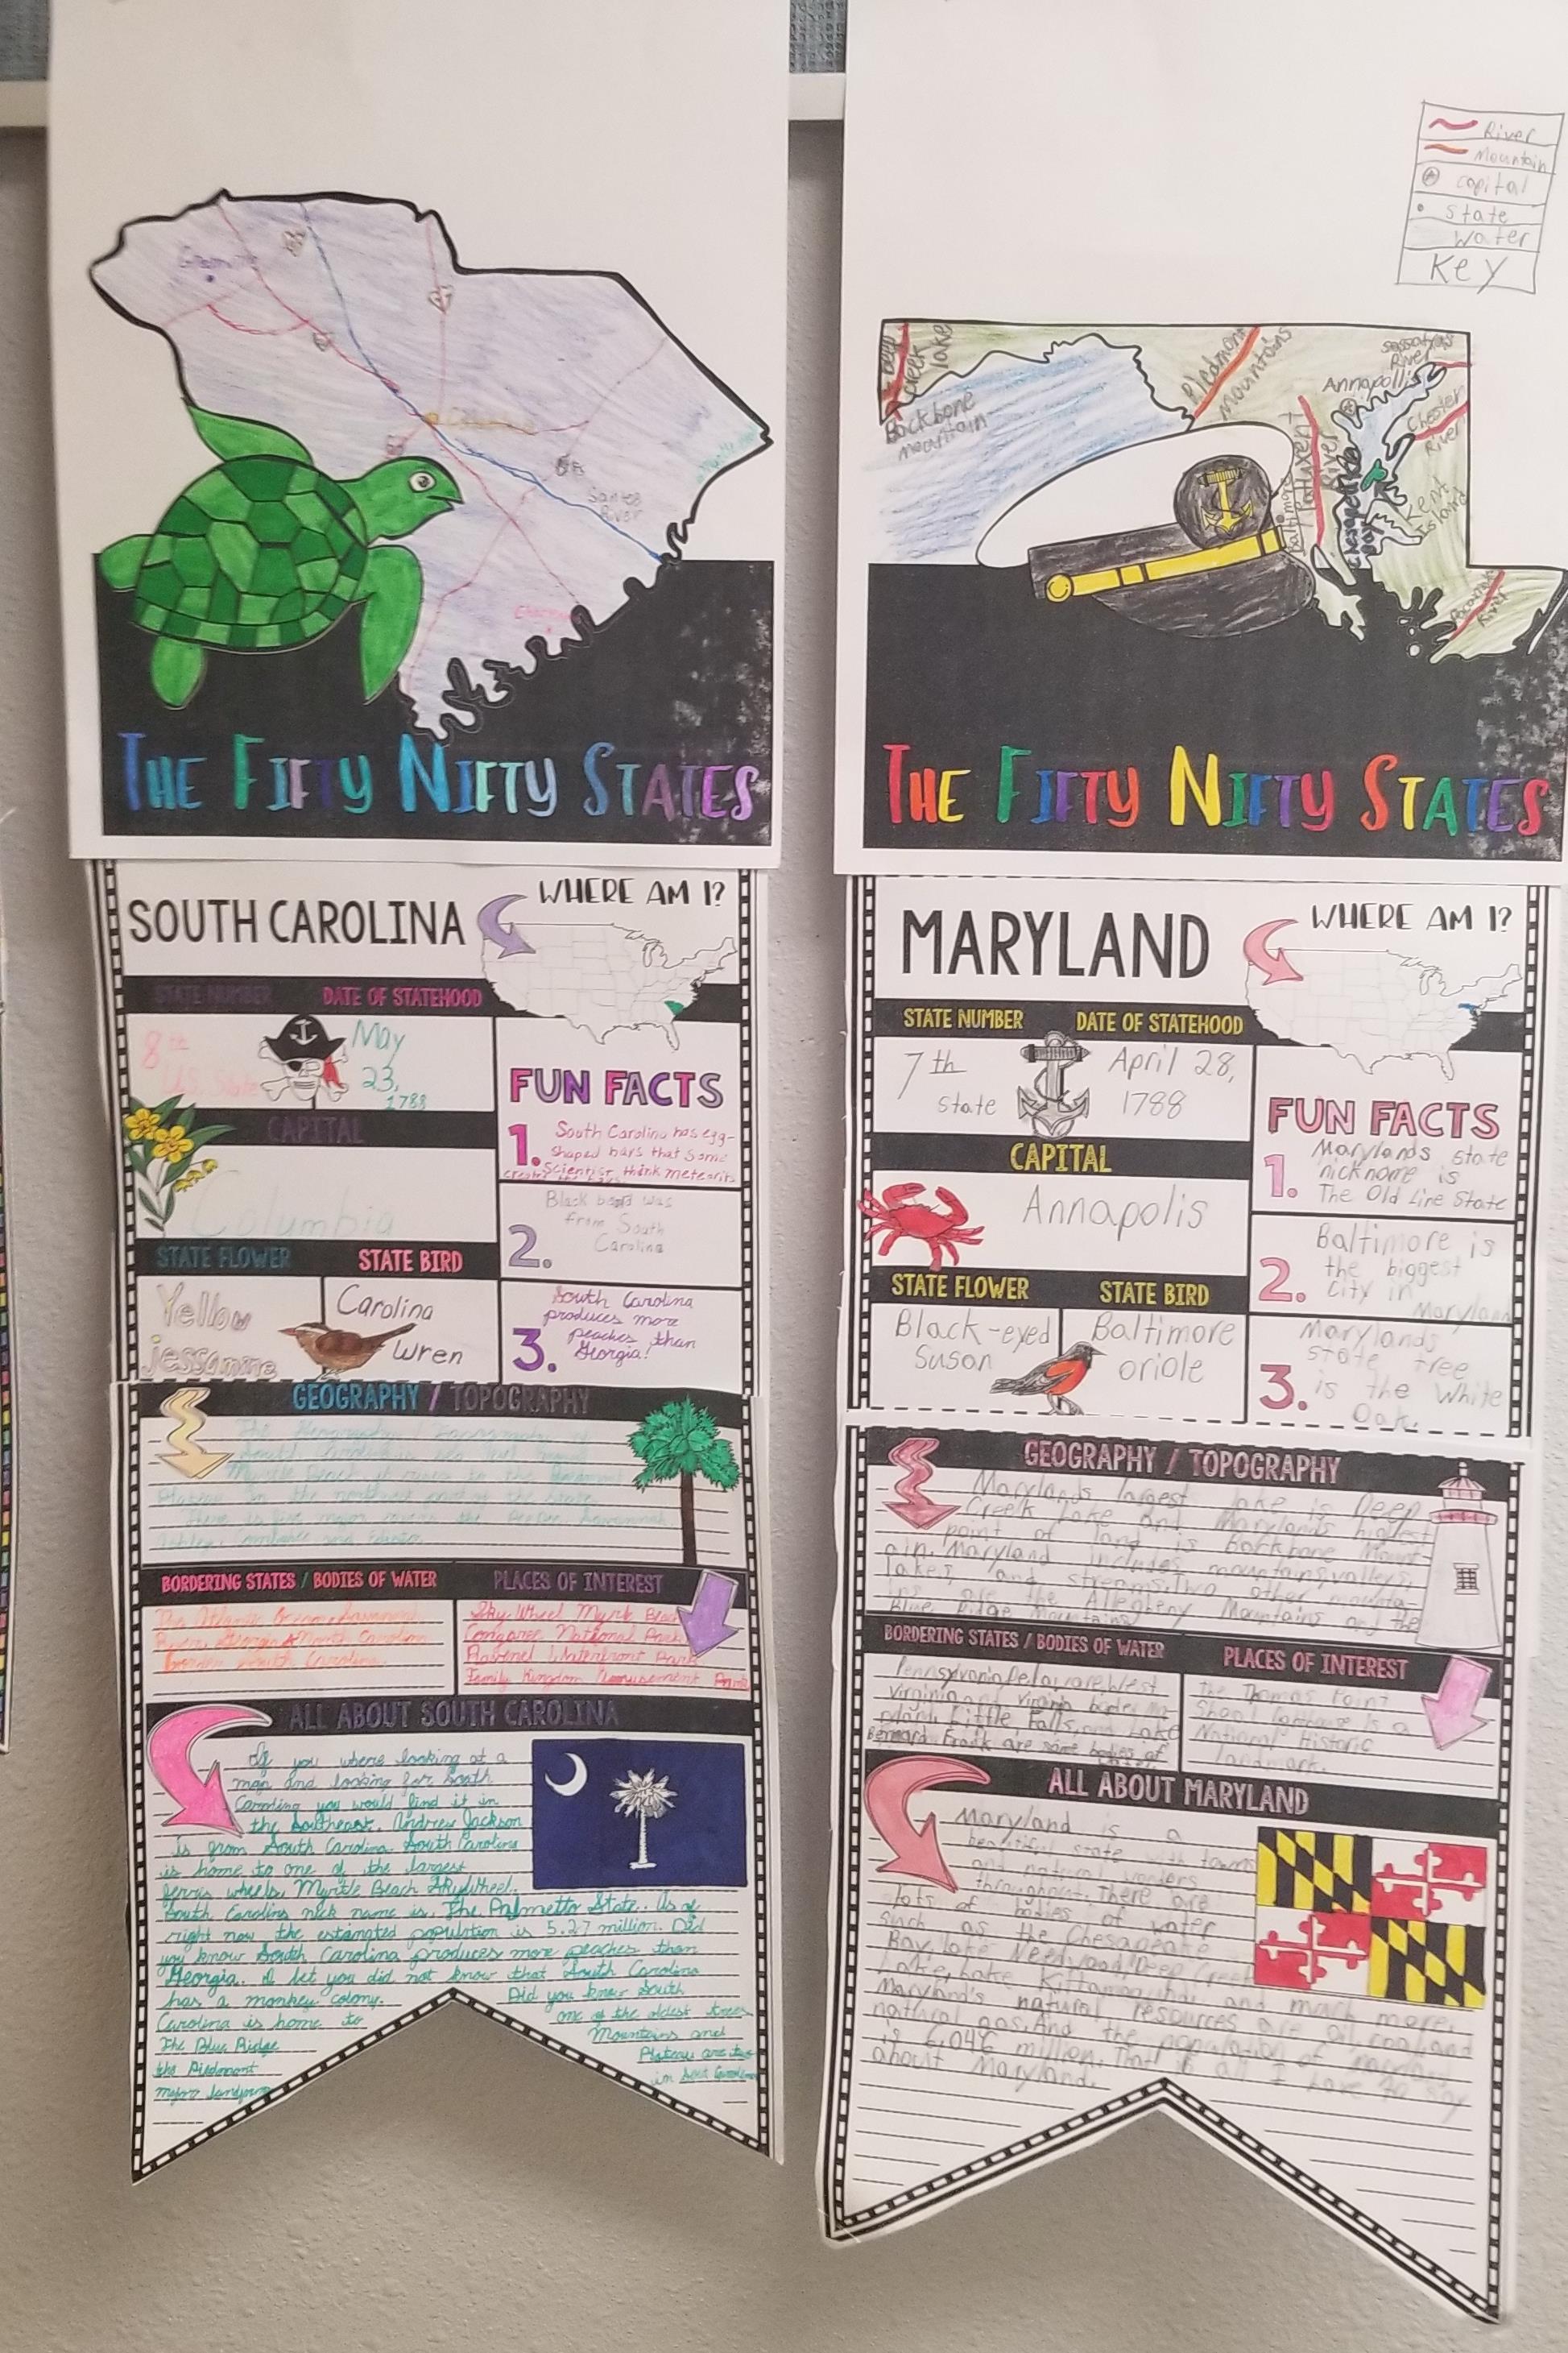 Santee
River
THE FIFTY NIFTY STATES
SOUTH CAROLINA
WHERE AM I?
STATE NUMBER
DATE OF STATEHOOD
8th
US State
May
23,
1788
CAPITAL
Columbia
STATE FLOWER
STATE BIRD
Yellow
jessamine
Carolina
Wren
FUN FACTS
1. South Carolina has egg-
shaped bays that some
Scientist think meteorits
2. Black beard was
from South
Carolina
3. South Carolina
produces more
peaches than
Georgia!
GEOGRAPHY / TOPOGRAPHY
BORDERING STATES / BODIES OF WATER
The Atlantic Ocean, Savannah
River, Georgia & North Carolina
border South Carolina
PLACES OF INTEREST
Sky Wheel Myrtle Beach
Congaree National Park
Waterfront Park
Family Kingdom Amusement Park
ALL ABOUT SOUTH CAROLINA
If you where looking at a
map and looking for South
Carolina you would find it in
the Southeast. Andrew Jackson
is from South Carolina. South Carolina
is home to one of the largest
ferris wheels, Myrtle Beach SkyWheel.
South Carolina nick name is, The Palmetto State. As of
right now the estamated population is 5.27 million. Did
you know South Carolina produces more peaches than
Georgia. I bet you did not know that South Carolina
has a monkey colony. Did you know South
Carolina is home to one of the oldest trees
The Blue Ridge Mountains and
the Piedmont Plateau are two
major landform in South Carolina
River
Mountain
capital
state
water
Key
Deep
Creek
lake
Backbone
mountain
Piedmont
Mountains
Sassafras
River
Annapolis
Chester
River
Patuxent
River
Baltimore
Chesapeake
Bay
Kent
Island
Pocomoke
River
THE FIFTY NIFTY STATES
MARYLAND
WHERE AM I?
STATE NUMBER
DATE OF STATEHOOD
7th
state
April 28,
1788
CAPITAL
Annapolis
STATE FLOWER
STATE BIRD
Black-eyed
Susan
Baltimore
oriole
FUN FACTS
1. Marylands state
nickname is
The Old Line State
2. Baltimore is
the biggest
City in
Maryland
3. Marylands
state tree
is the White
Oak.
GEOGRAPHY / TOPOGRAPHY
Marylands largest lake is Deep
Creek Lake and Marylands highest
point of land is Backbone Mount-
ain. Maryland includes mountains, valleys,
lakes, and streams. two other mounta-
ins are the Allegheny Mountains and the
Blue Ridge Mountains
BORDERING STATES / BODIES OF WATER
Pennsylvania, Delaware, West
Virginia and Virginia border Ma-
ryland. Little Falls, and Lake
Bernard Frank are some bodies of
PLACES OF INTEREST
the Thomas Point
Shoal Lighthouse is a
National Historic
landmark.
ALL ABOUT MARYLAND
Maryland is a
beautiful state with towns
and natural wonders
throughout. There are
lots of bodies of water
such as the Chesapeake
Bay, lake Needwood, Deep Creek
Lake, Lake Kittamaqundi and much more.
Maryland's natural resources are oil, coal, and
natural gas. And the population of maryland
is 6.046 million. That is all I have to say
about Maryland.